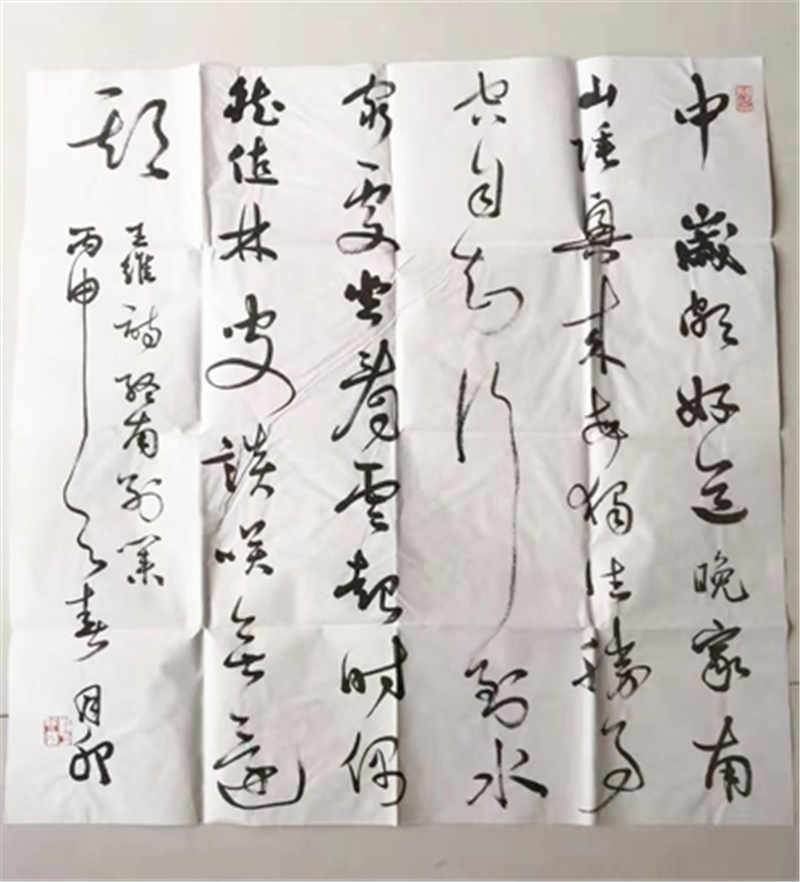 中歲頗好道晚家南
山陲興来每獨往勝事
空自知行到水
穷處坐看雲起时偶
然值林叟談咲無還
期
王維詩終南別業
丙申之春月